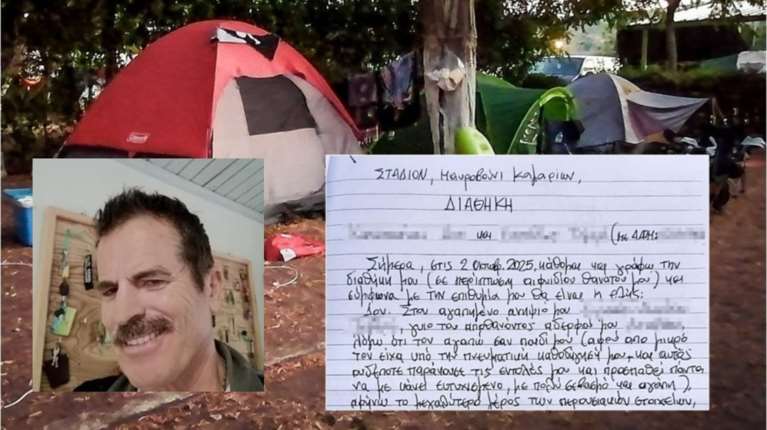 Coleman
ΣΤΑΔΙΟΝ, Μαυροβούνι Καμαρίων,
ΔΙΑΘΗΚΗ
και (με ΑΦΜ:
Σήμερα, στις 2 Οκτωβ. 2025, κάθομαι και γράφω την
διαθήκη μου (σε περίπτωση αιφνιδίου θανάτου μου) και
σύμφωνα με την επιθυμία μου θα είναι η εξής:
1ον. Στον αγαπημένο ανηψιό μου
γυιο του αποθανόντος αδερφού μου
λόγω ότι τον αγαπώ σαν παιδί μου (αφού από μικρό
τον είχα υπό την πνευματική καθοδήγησή μου, και αυτός
ουδέποτε παράκουσε τις εντολές μου και προσπαθεί πάντα
να με κάνει ευτυχισμένο, με πολύ σεβασμό και αγάπη),
αφήνω το μεγαλύτερο μέρος των περουσιακών στοιχείων,